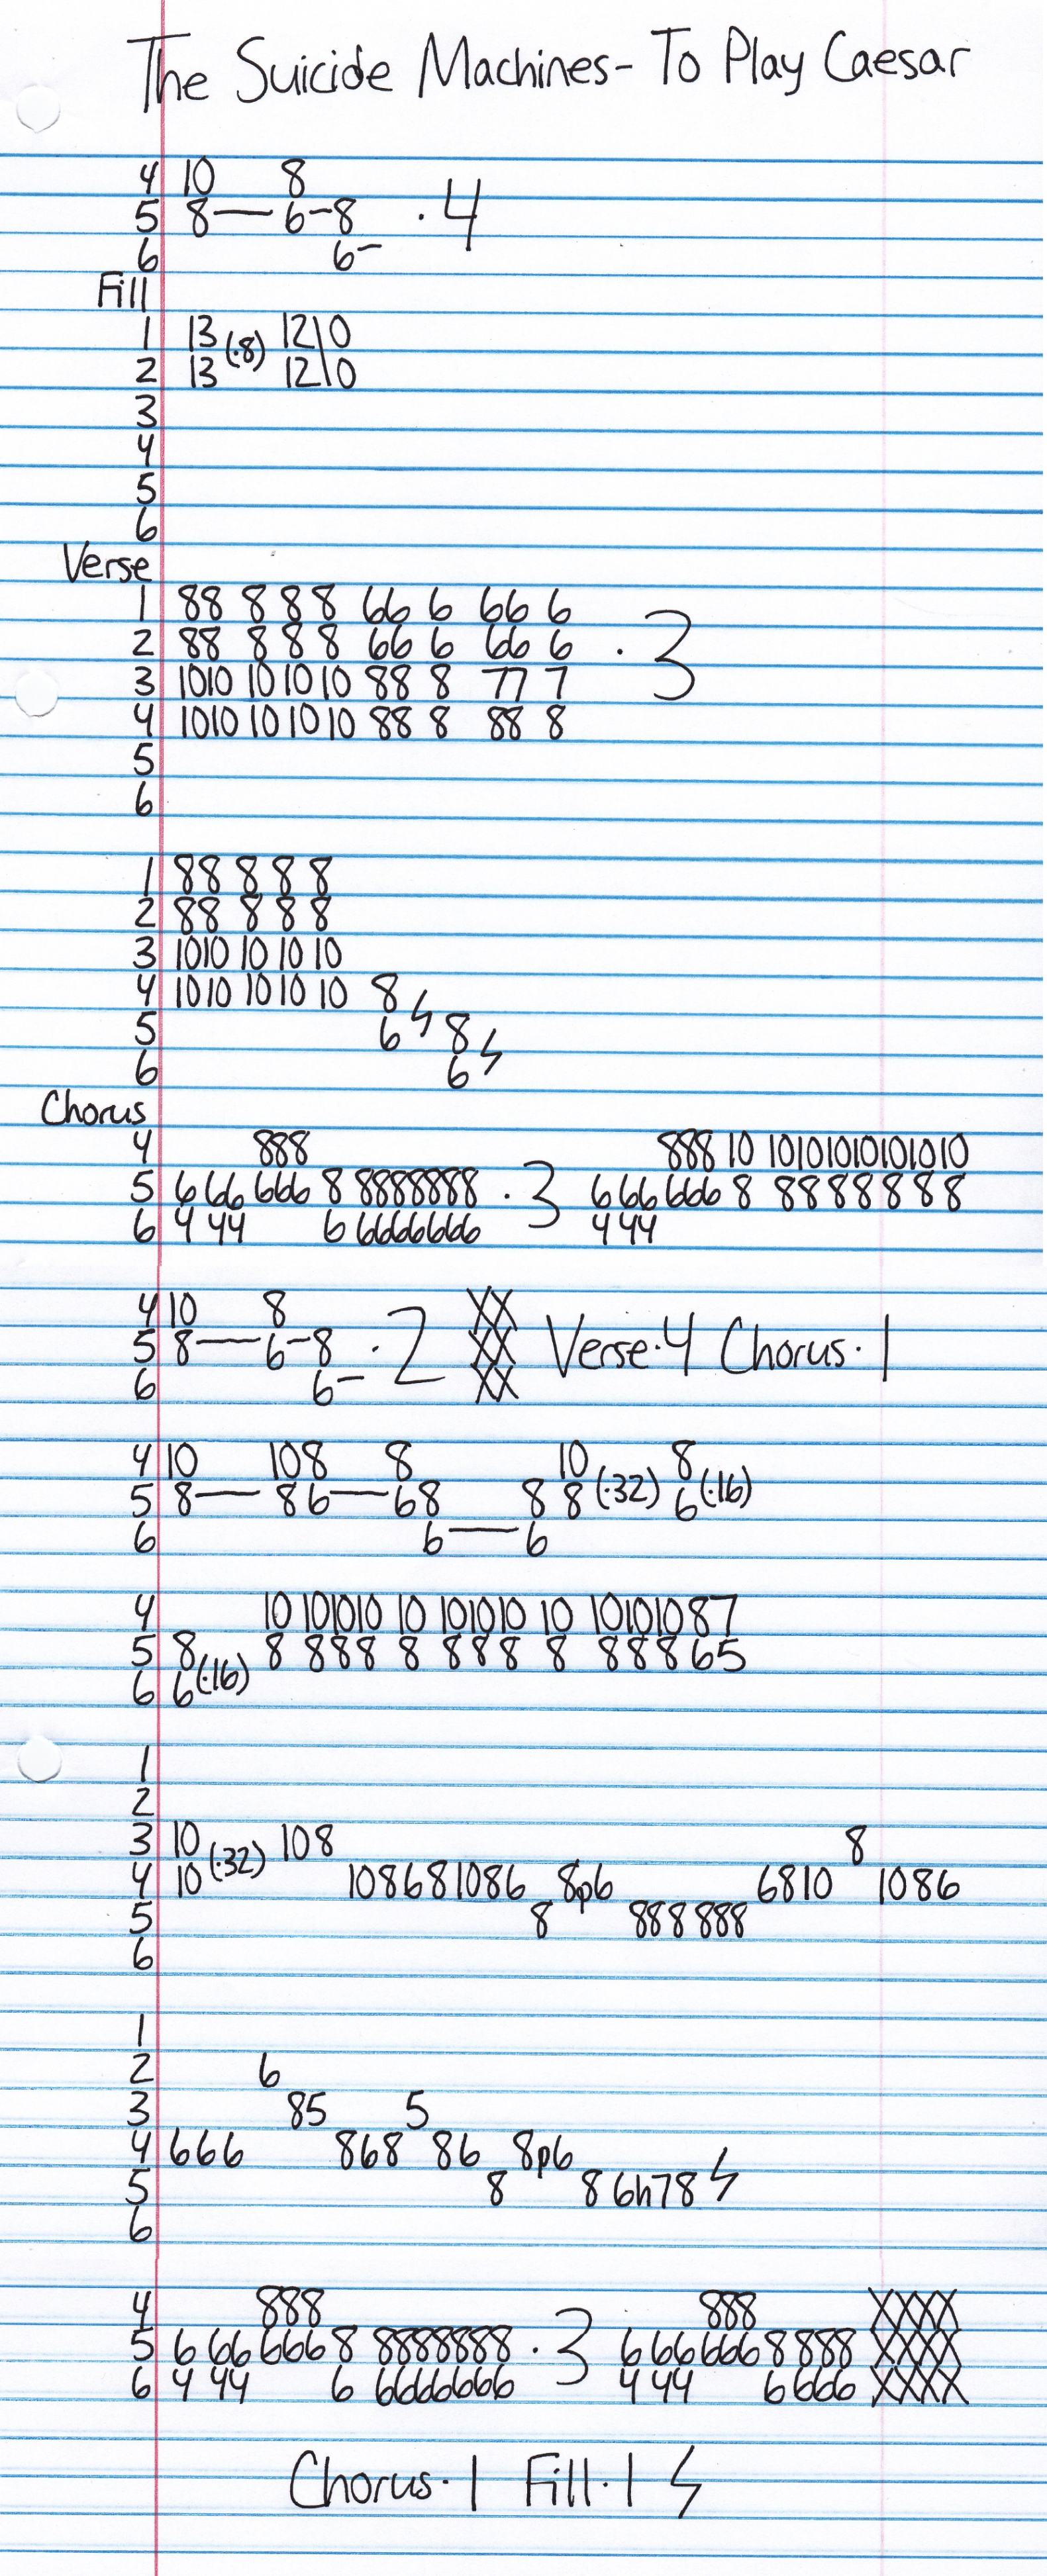 The Suicide Machines- To Play Caesar
4 10 8
5 8— 6-8 .4
6 6-
Fill
1 13 (.8) 12\0
2 13 12\0
3
4
5
6
Verse
1 88 8 8 8 66 6 66 6
2 88 8 8 8 66 6 66 6 .3
3 1010 10 10 10 88 8 77 7
4 1010 10 10 10 88 8 88 8
5
6
1 88 8 8 8
2 88 8 8 8
3 1010 10 10 10
4 1010 10 10 10 8
5 6 8
6 6
Chorus
4 888 888 10 10101010101010
5 6 66 666 8 8888888 .3 6 66 666 8 8888888
6 4 44 6 6666666 4 44
4 10 8 XX
5 8— 6-8 .2 XX Verse.4 Chorus.1
6 6- XX
4 10 108 8 10 8
5 8— 86—68 8 8 (.32) 6 (.16)
6 6—6
4 10 101010 10 101010 10 10101087
5 8 8 888 8 888 8 88865
6 6(.16)
1
2
3 10 (.32) 108 8
4 10 108681086 8p6 6810 1086
5 8 888888
6
1
2 6
3 85 5
4 666 868 86 8p6
5 8 8 6h78
6
4 888 888 XXXX
5 6 66 666 8 8888888 .3 6 66 666 8 888 XXXX
6 4 44 6 6666666 4 44 6 666 XXXX
Chorus.1 Fill.1